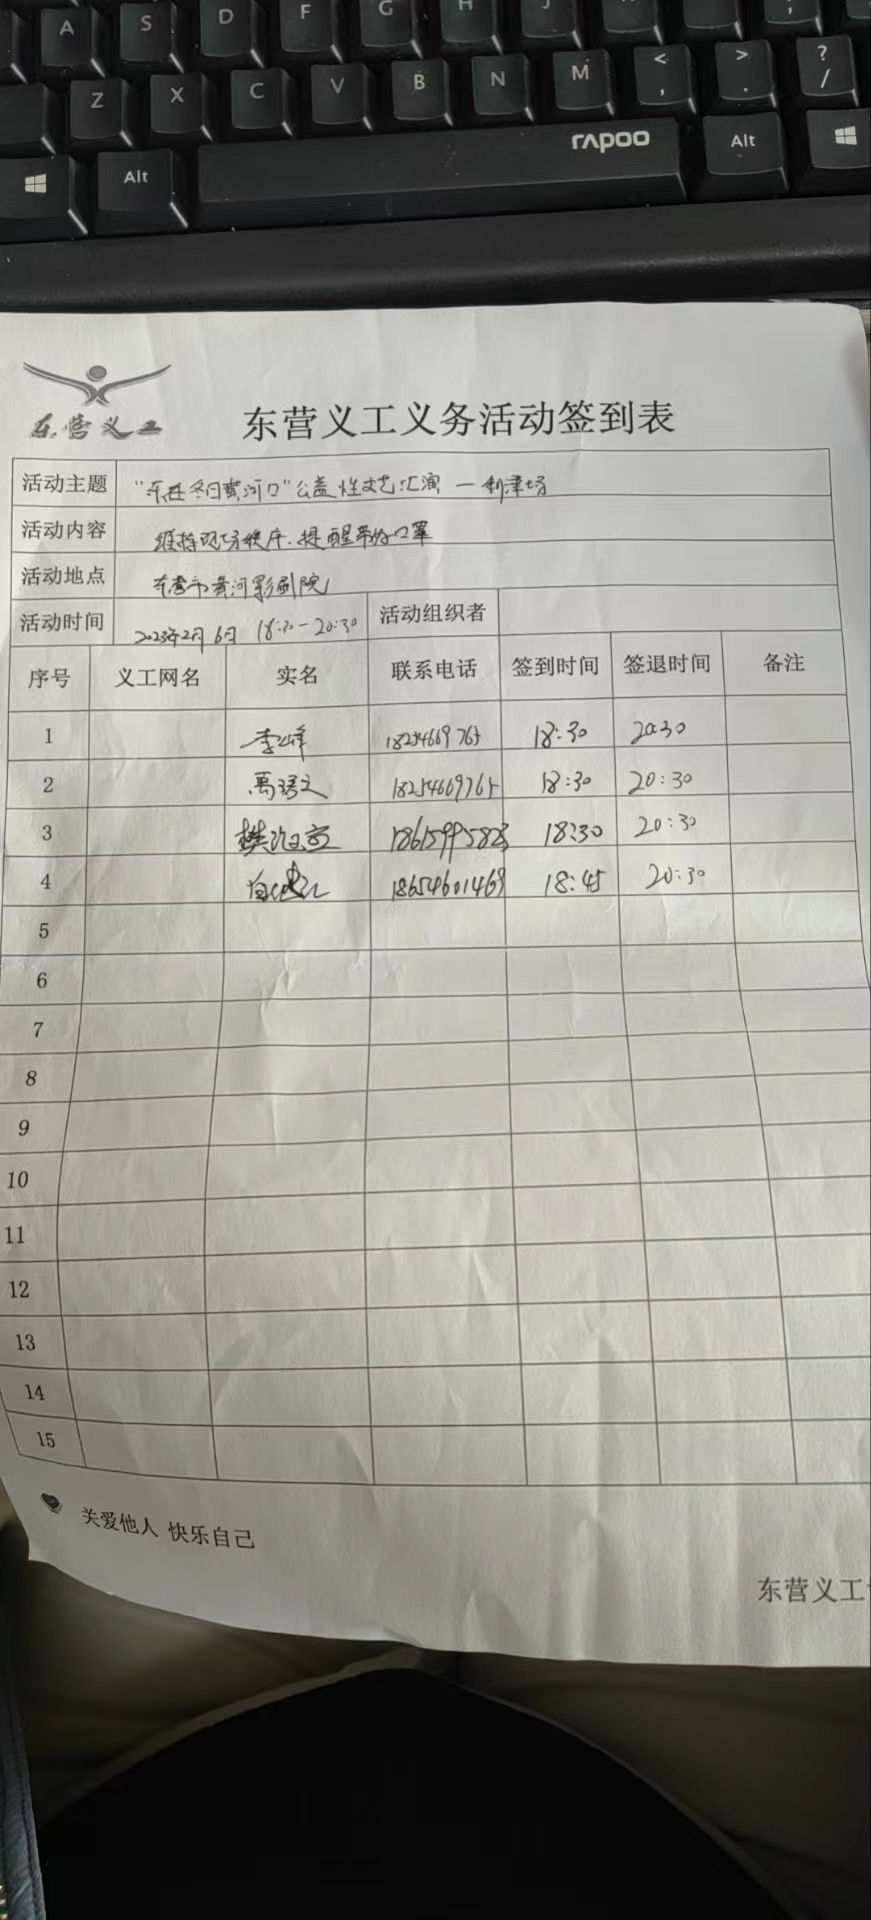 A S D F G H J ;
Z X C V B N M < , > . ? /
Alt rapoo Alt
东营义工
东营义工义务活动签到表
活动主题 "乐在冬日黄河口"公益性文艺汇演 — 利津场
活动内容 维持现场秩序、提醒带好口罩
活动地点 东营市黄河影剧院
活动时间 2023年2月6日 18:30-20:30 活动组织者
序号 义工网名 实名 联系电话 签到时间 签退时间 备注
1 18254669765 18:30 20:30
2 18254669765 18:30 20:30
3 18615995823 18:30 20:30
4 18654601469 18:45 20:30
5
6
7
8
9
10
11
12
13
14
15
关爱他人 快乐自己
东营义工